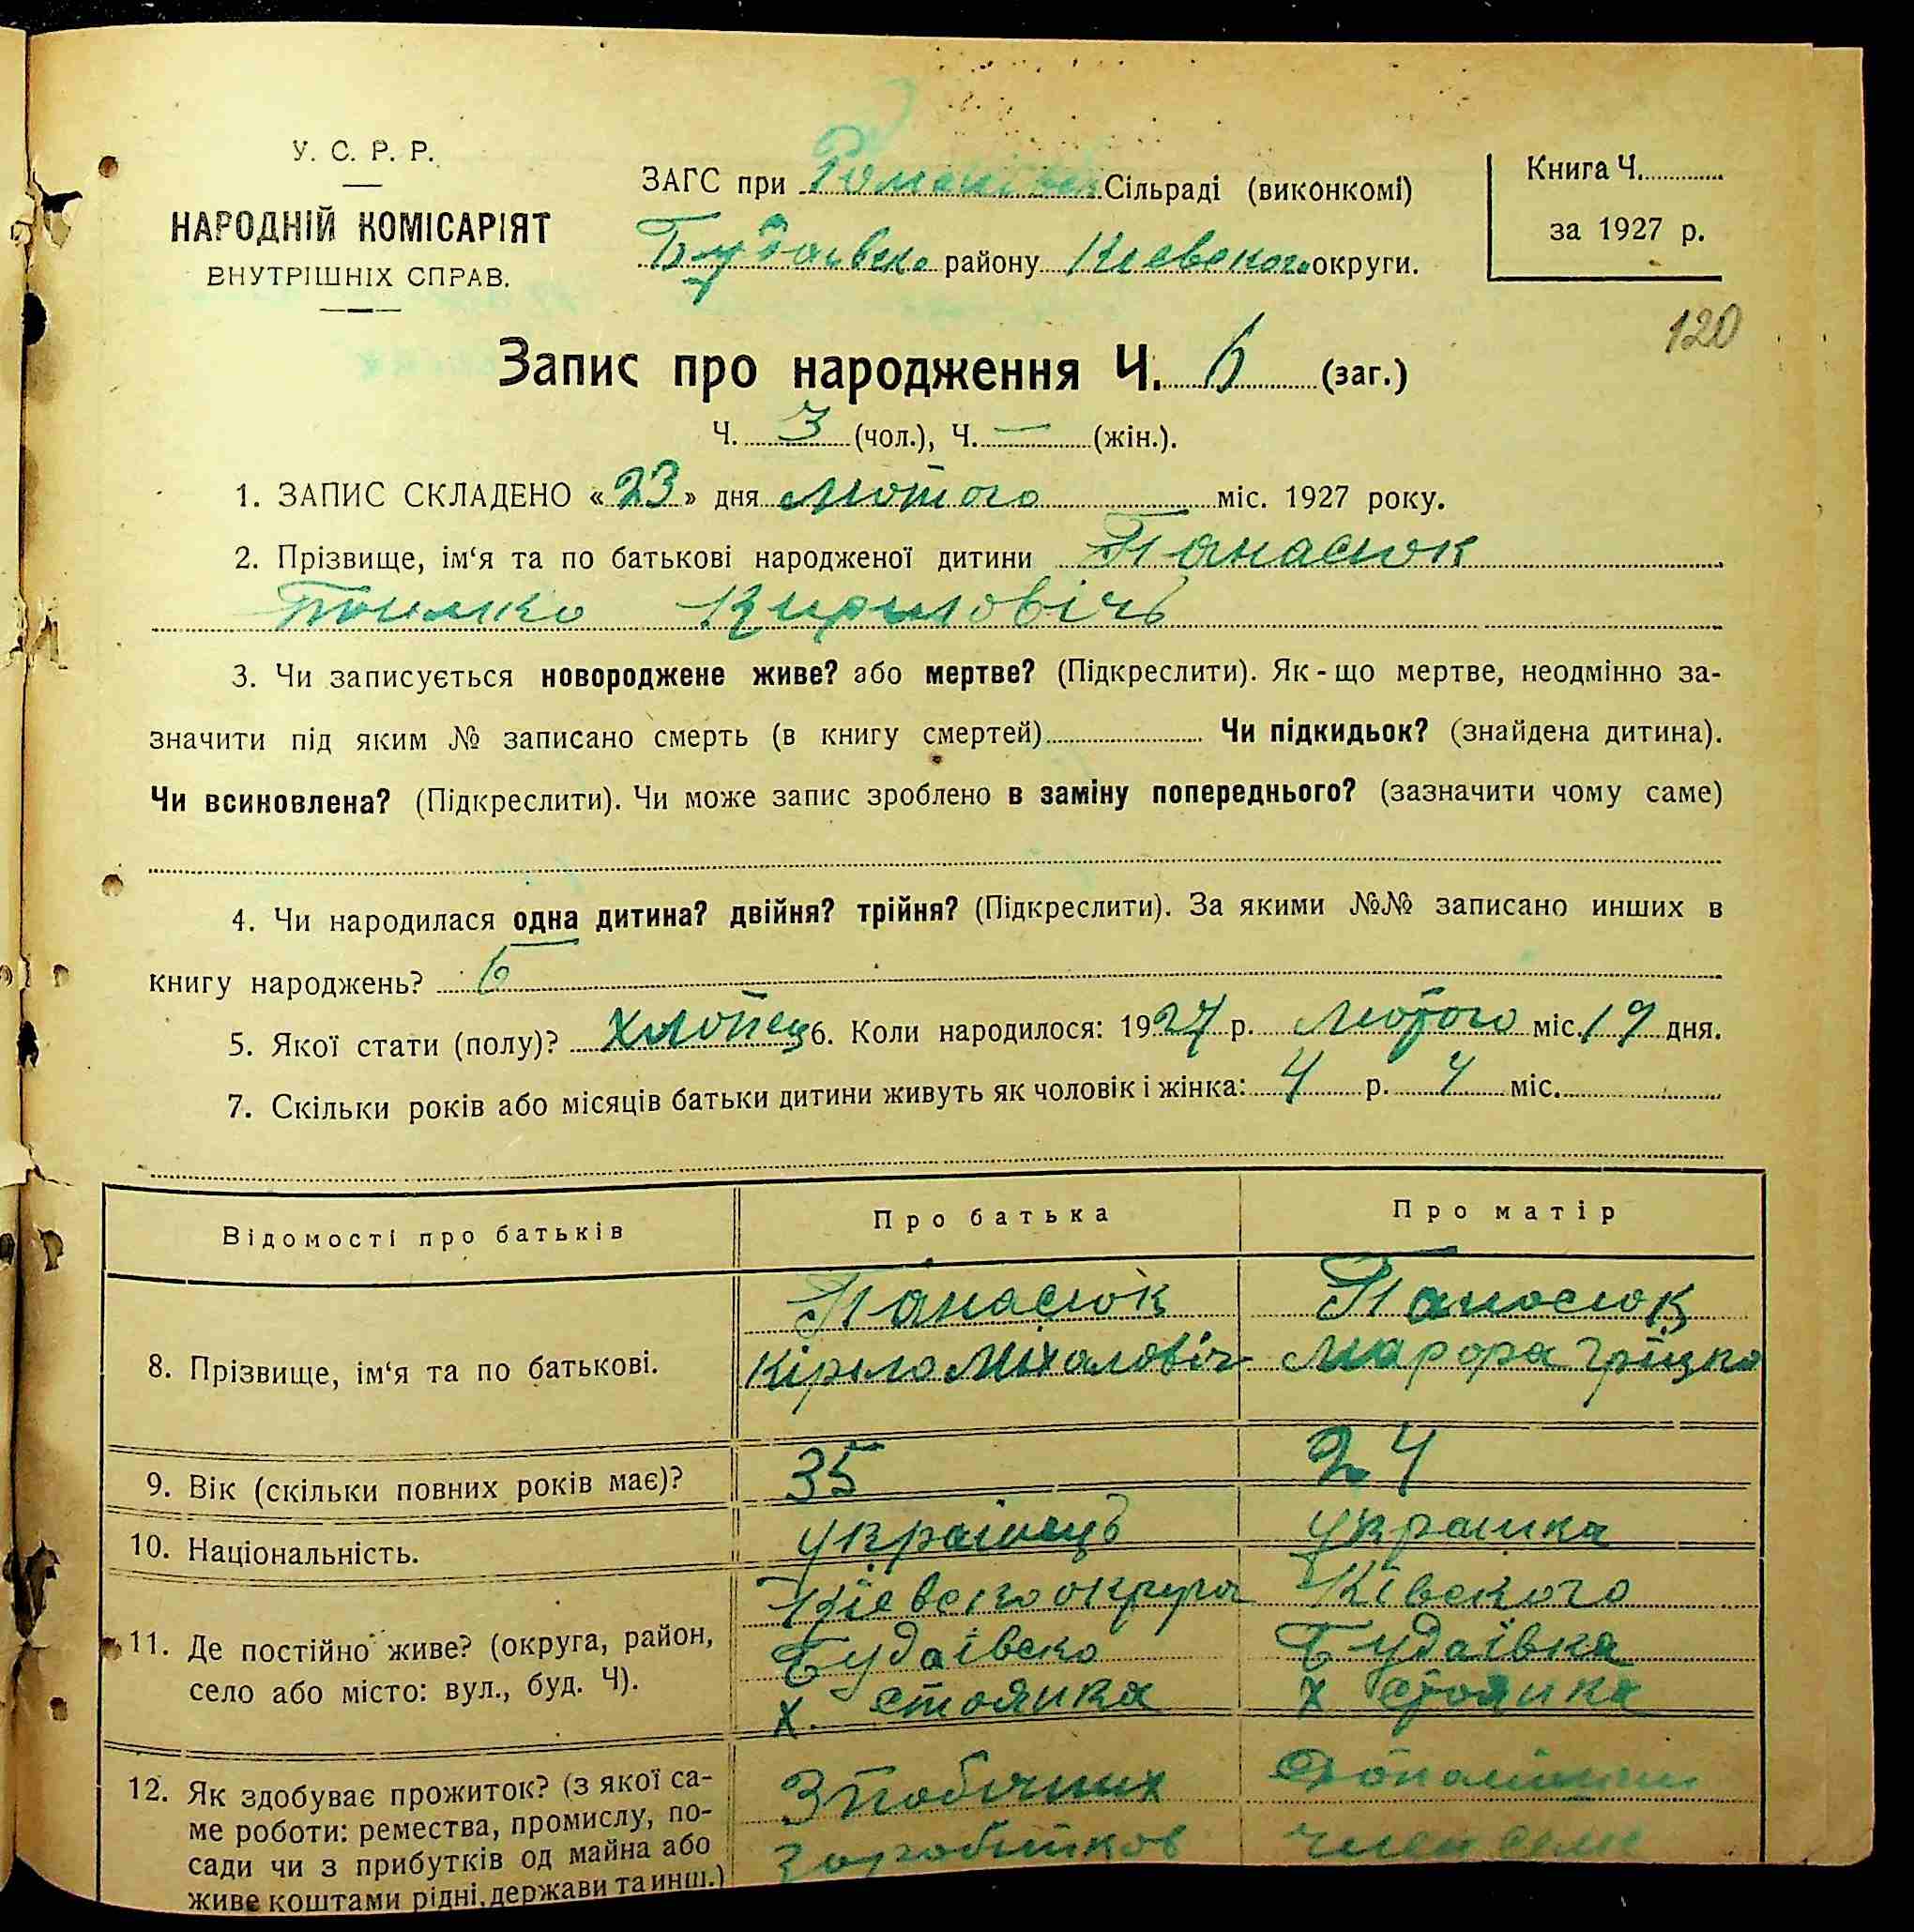 У. С. Р. Р.
НАРОДНІЙ КОМІСАРІЯТ
ВНУТРІШНІХ СПРАВ.
ЗАГС при Романівск Сільраді (виконкомі)
Будаівско району Кіевского округи.
Книга Ч.
за 1927 р.
120
Запис про народження Ч. 6 (заг.)
Ч. 3 (чол.), Ч. — (жін.).
1. ЗАПИС СКЛАДЕНО «23» дня Лютого міс. 1927 року.
2. Прізвище, ім‘я та по батькові народженої дитини Панасюк
Кириловічь
3. Чи записується новороджене живе? або мертве? (Підкреслити). Як-що мертве, неодмінно за-
значити під яким № записано смерть (в книгу смертей) Чи підкидьок? (знайдена дитина).
Чи всиновлена? (Підкреслити). Чи може запис зроблено в заміну попереднього? (зазначити чому саме)
4. Чи народилася одна дитина? двійня? трійня? (Підкреслити). За якими №№ записано инших в
книгу народжень? 6
5. Якої стати (полу)? Хлопец 6. Коли народилося: 1927 р. Лютого міс. 19 дня.
7. Скільки років або місяців батьки дитини живуть як чоловік і жінка: 4 р. 4 міс.
Відомості про батьків
Про батька
Про матір
8. Прізвище, ім‘я та по батькові.
Панасюк
Кірило Міхаловіч
Паносюк
Грицко
9. Вік (скільки повних років має)?
35
24
10. Національність.
украінець
украінка
11. Де постійно живе? (округа, район,
село або місто: вул., буд. Ч).
Кіевско округа
Будаівско
х. стоянка
Ківского
Будаівка
х стоянка
12. Як здобуває прожиток? (з якої са-
ме роботи: ремества, промислу, по-
сади чи з прибутків од майна або
живе коштами рідні, держави та инш.)
З побічних
заробітков
член семе